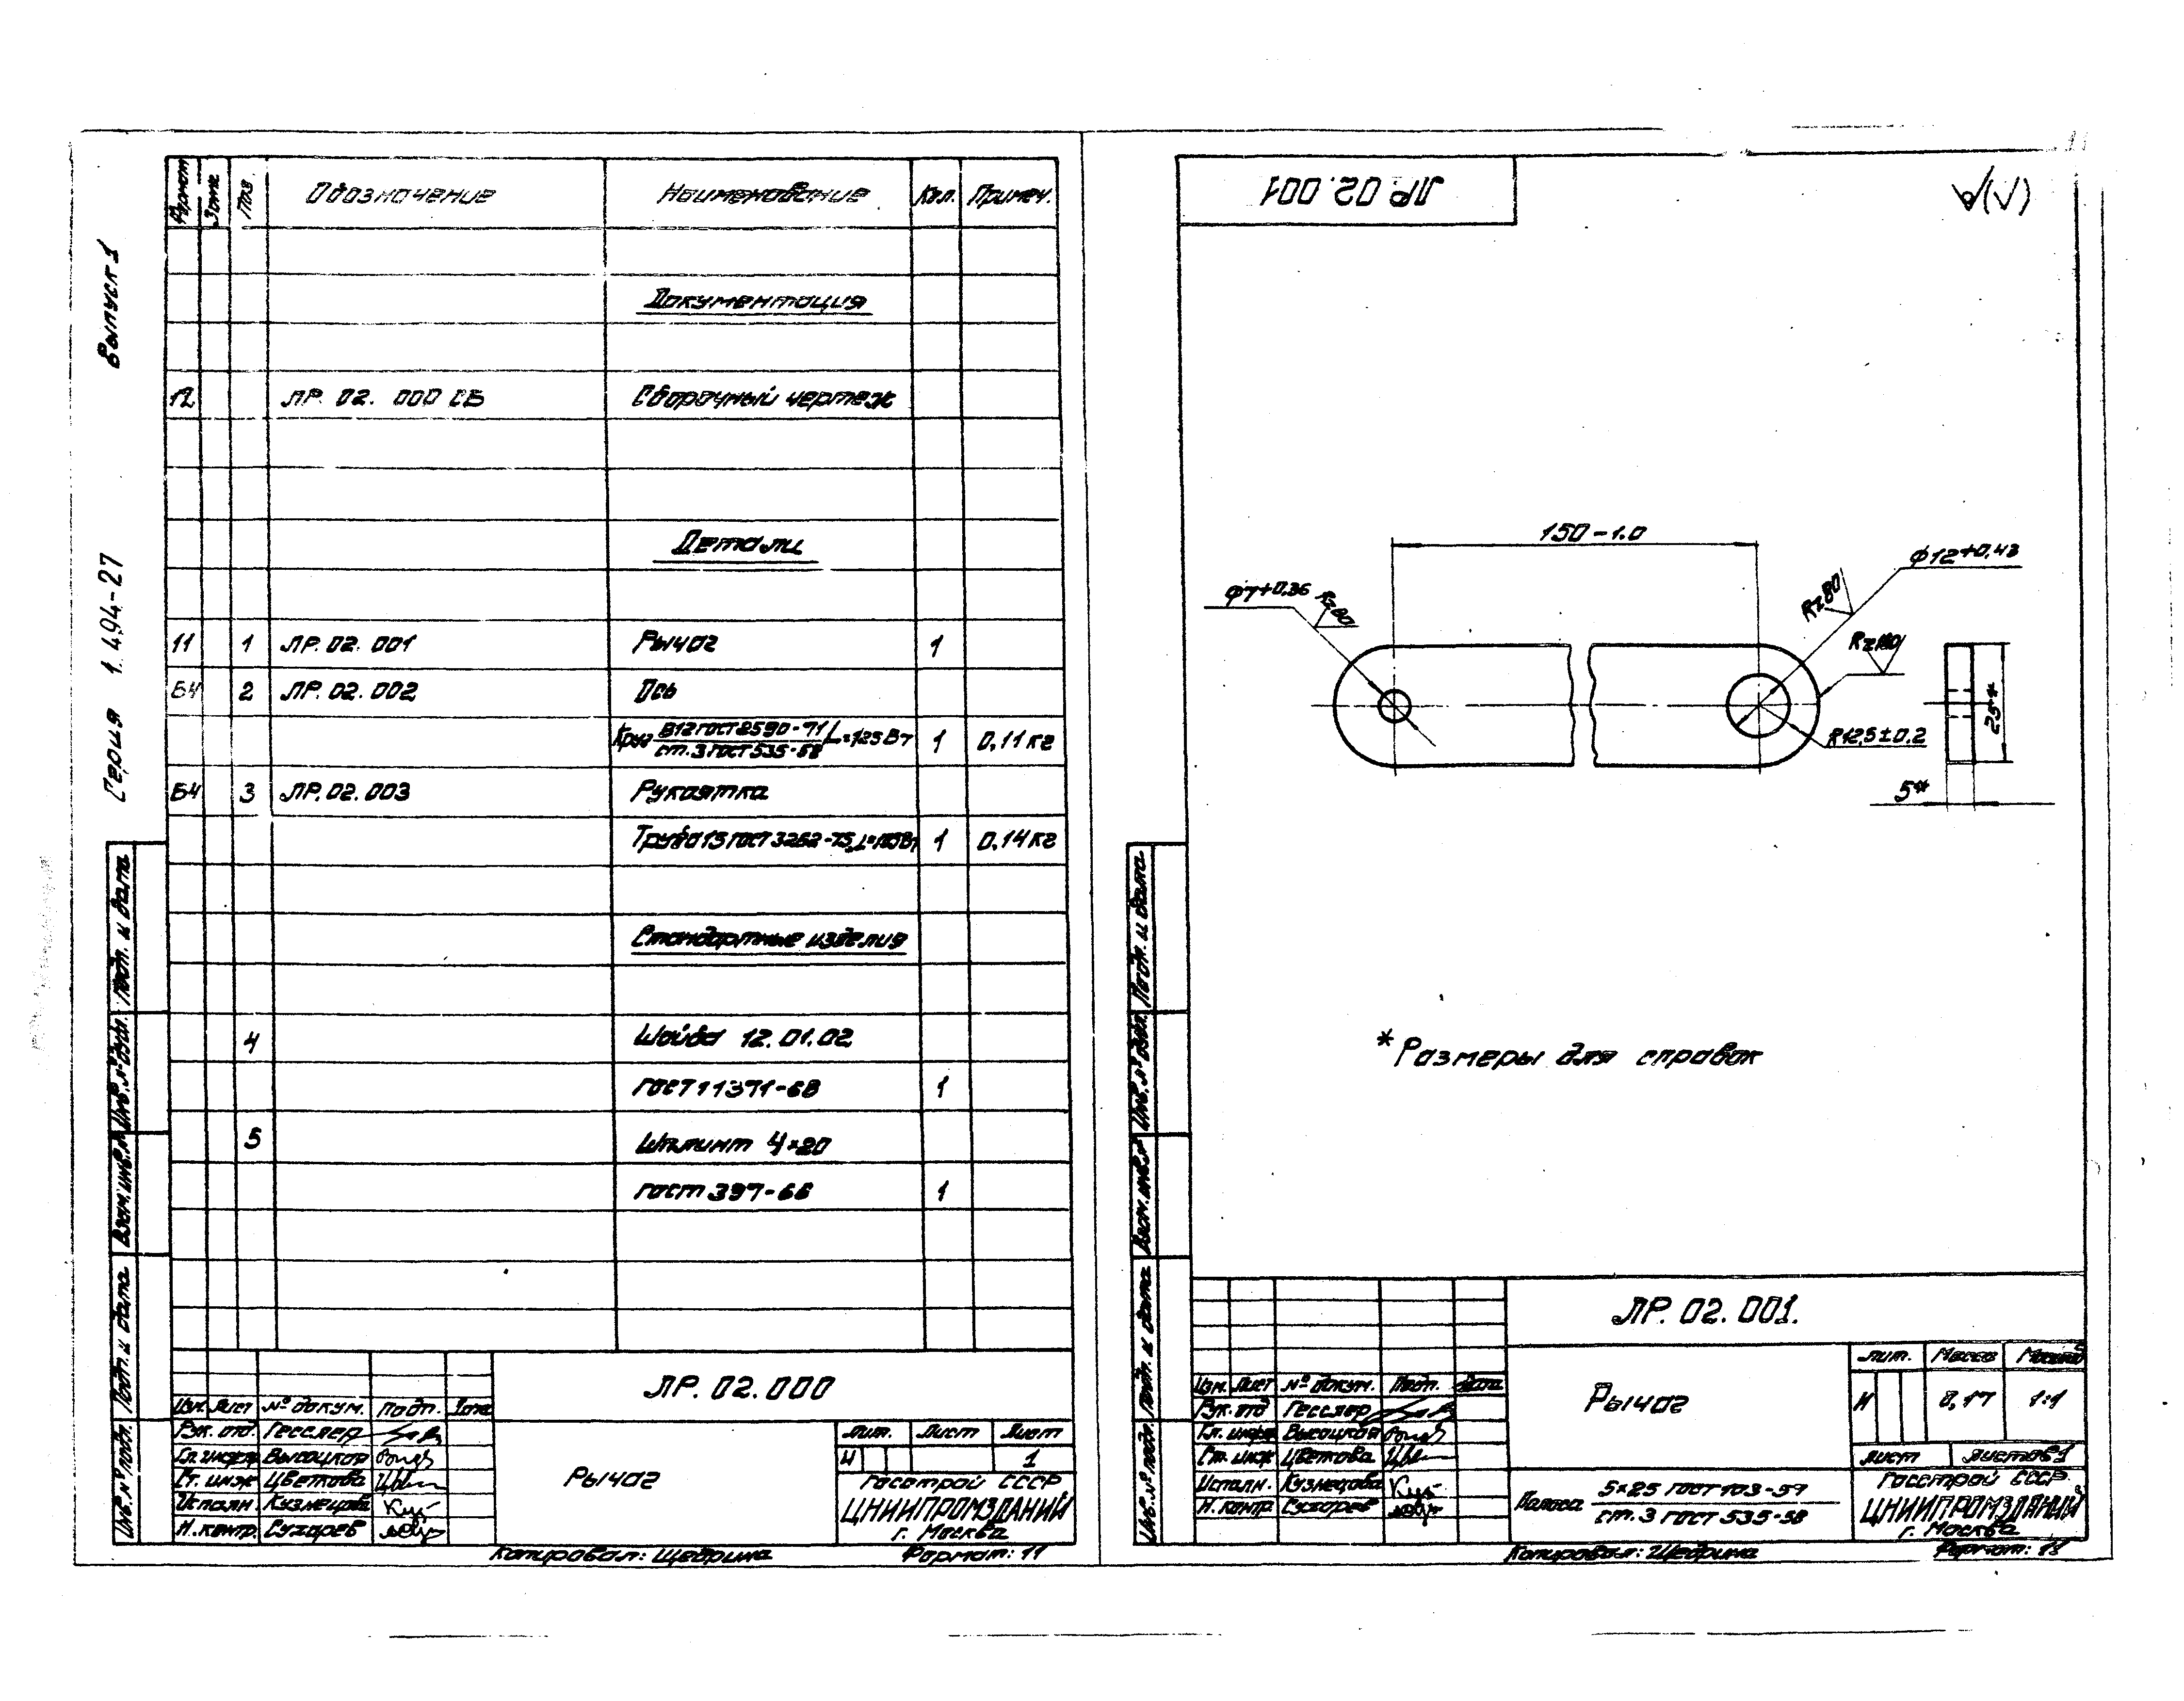 Выпуск 1
Серия 1.494-27
Формат Зона Поз. Обозначение Наименование Кол. Примеч.
Документация
12 ЛР. 02. 000 СБ Сборочный чертеж
Детали
11 1 ЛР. 02. 001 Рычаг 1
БЧ 2 ЛР. 02. 002 Ось
Круг В12 ГОСТ 2590-71 / ст. 3 ГОСТ 535-58 1 0,11 кг
БЧ 3 ЛР. 02. 003 Рукоятка
Труба 15 ГОСТ 3262-75 1 0,14 кг
Стандартные изделия
4 Шайба 12.01.02
ГОСТ 11371-68 1
5 Шплинт 4×20
ГОСТ 397-66 1
Подп. и дата
Инв. № дубл.
Взам. инв. №
Подп. и дата
Инв. № подл.
Изм. Лист № докум. Подп. Дата
Рук. отд. Гесслер
Гл. инж. Высоцкая
Ст. инж. Цветкова
Исполн. Кузнецова
Н. контр. Сухарев
ЛР. 02. 000
Рычаг
Лит. Лист Лист
И 1
Госстрой СССР
ЦНИИПРОМЗДАНИЙ
г. Москва
Копировал: Щедрина Формат: 11
ЛР. 02. 001
(√)
150-1.0
ф7+0,36
Rz80
ф12+0,43
Rz80
R12,5±0,2
25*
5*
* Размеры для справок
Подп. и дата
Инв. № дубл.
Взам. инв. №
Подп. и дата
Инв. № подл.
Изм. Лист № докум. Подп. Дата
Рук. отд. Гесслер
Гл. инж. Высоцкая
Ст. инж. Цветкова
Исполн. Кузнецова
Н. контр. Сухарев
ЛР. 02. 001.
Рычаг
Лит. Масса Масштаб
И 0,17 1:1
Лист Листов 1
Полоса 5×25 ГОСТ 103-57 / ст. 3 ГОСТ 535-58
Госстрой СССР
ЦНИИПРОМЗДАНИЙ
г. Москва
Копировал: Щедрина Формат: 11